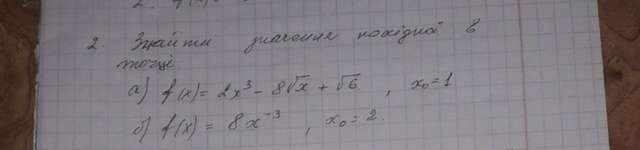 2. Знайти значення похідної в
точці
а) f(x) = 2x³ - 8√x + √6 , x₀ = 1
б) f(x) = 8x⁻³ , x₀ = 2.